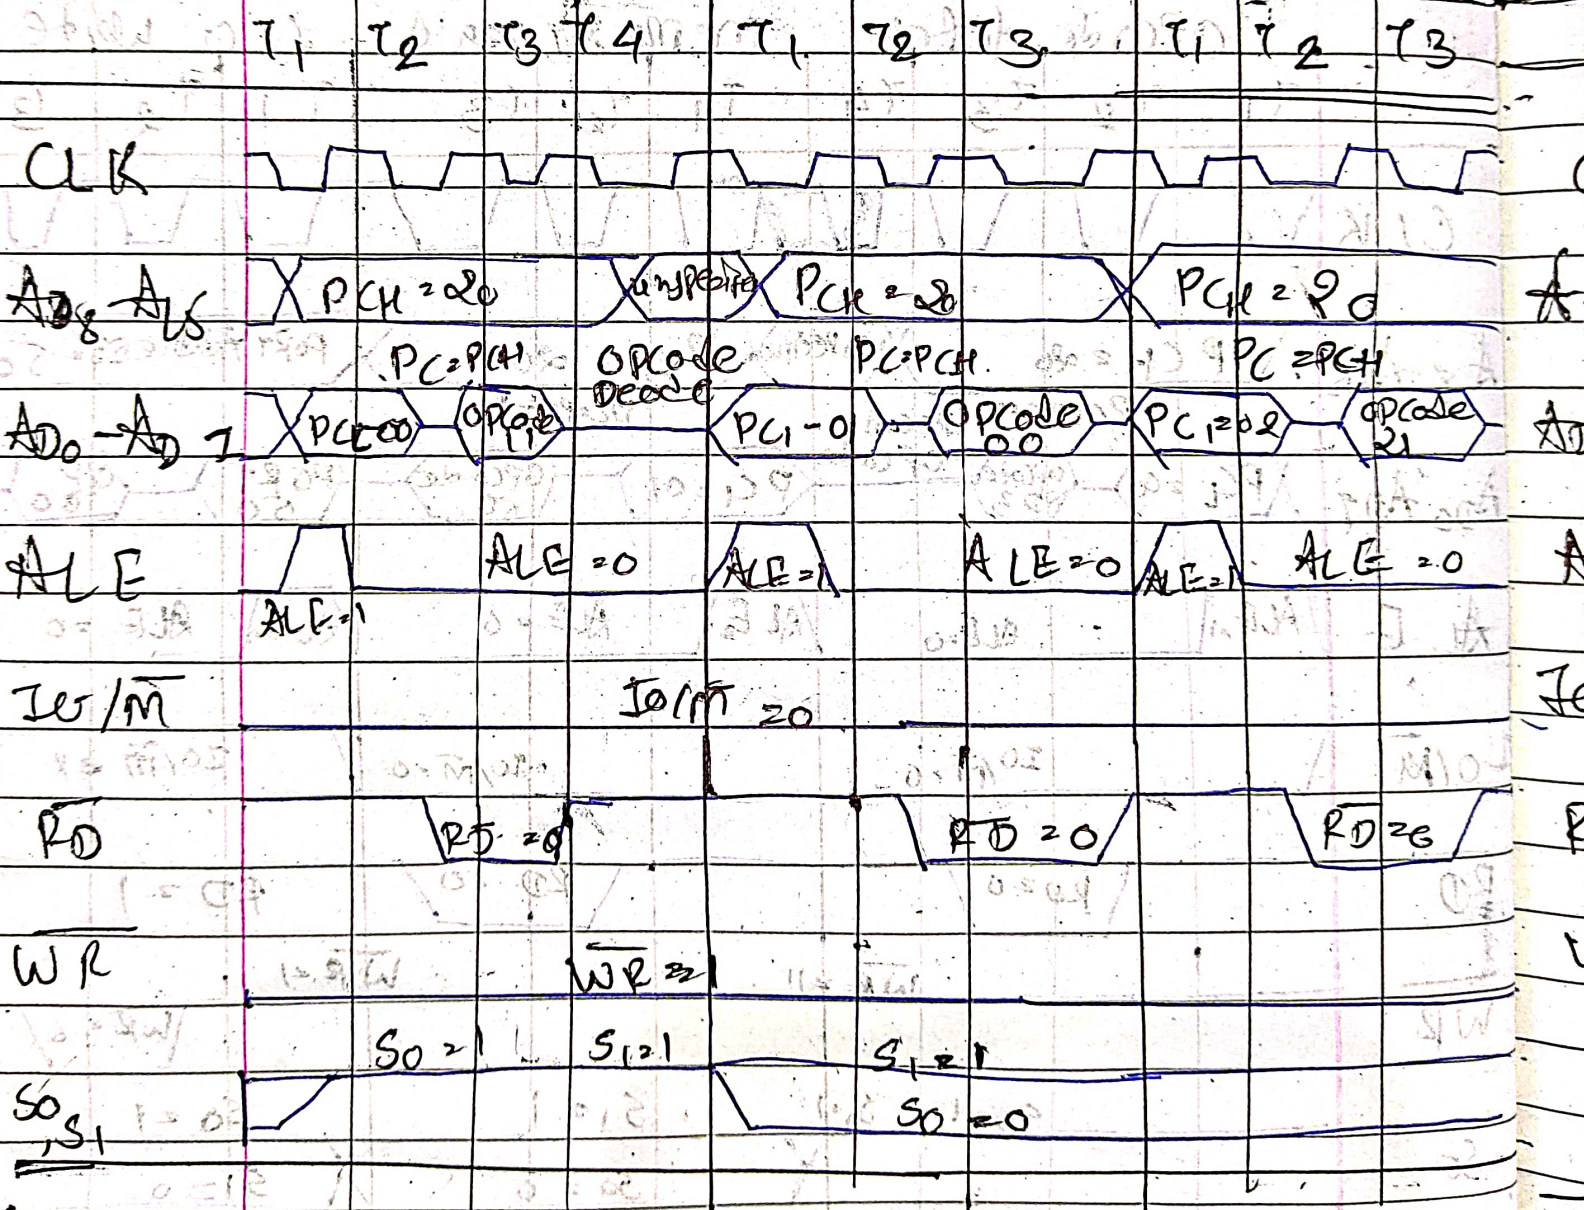 T1 T2 T3 T4 T1 T2 T3 T1 T2 T3
CLK
AD8-A15 PCH = 20 PCH = 20 PCH = 20
PC=PCH OPCode Deode PC=PCH. PC=PCH
AD0-AD7 PCL=00 OPCode PCL-0 OPCode 00 PCL=02 OPCode 21
ALE ALE=1 ALE=0 ALE=1 ALE=0 ALE=1 ALE=0
IO/M̅ IO/M̅ =0
R̅D̅ R̅D̅ =0 R̅D̅ =0 R̅D̅=0
W̅R̅ W̅R̅ =1
S0=1 S1=1 S1=1
S0,S1 S0=0